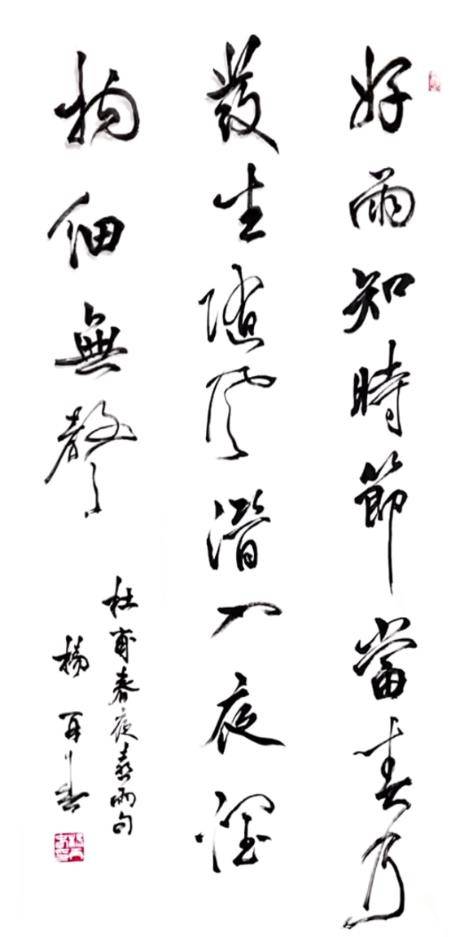 好雨知時節當春乃
發生隨風潛入夜潤
物細無聲
杜甫春夜喜雨句
楊再春